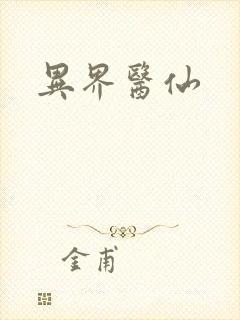 異界醫仙
金甫